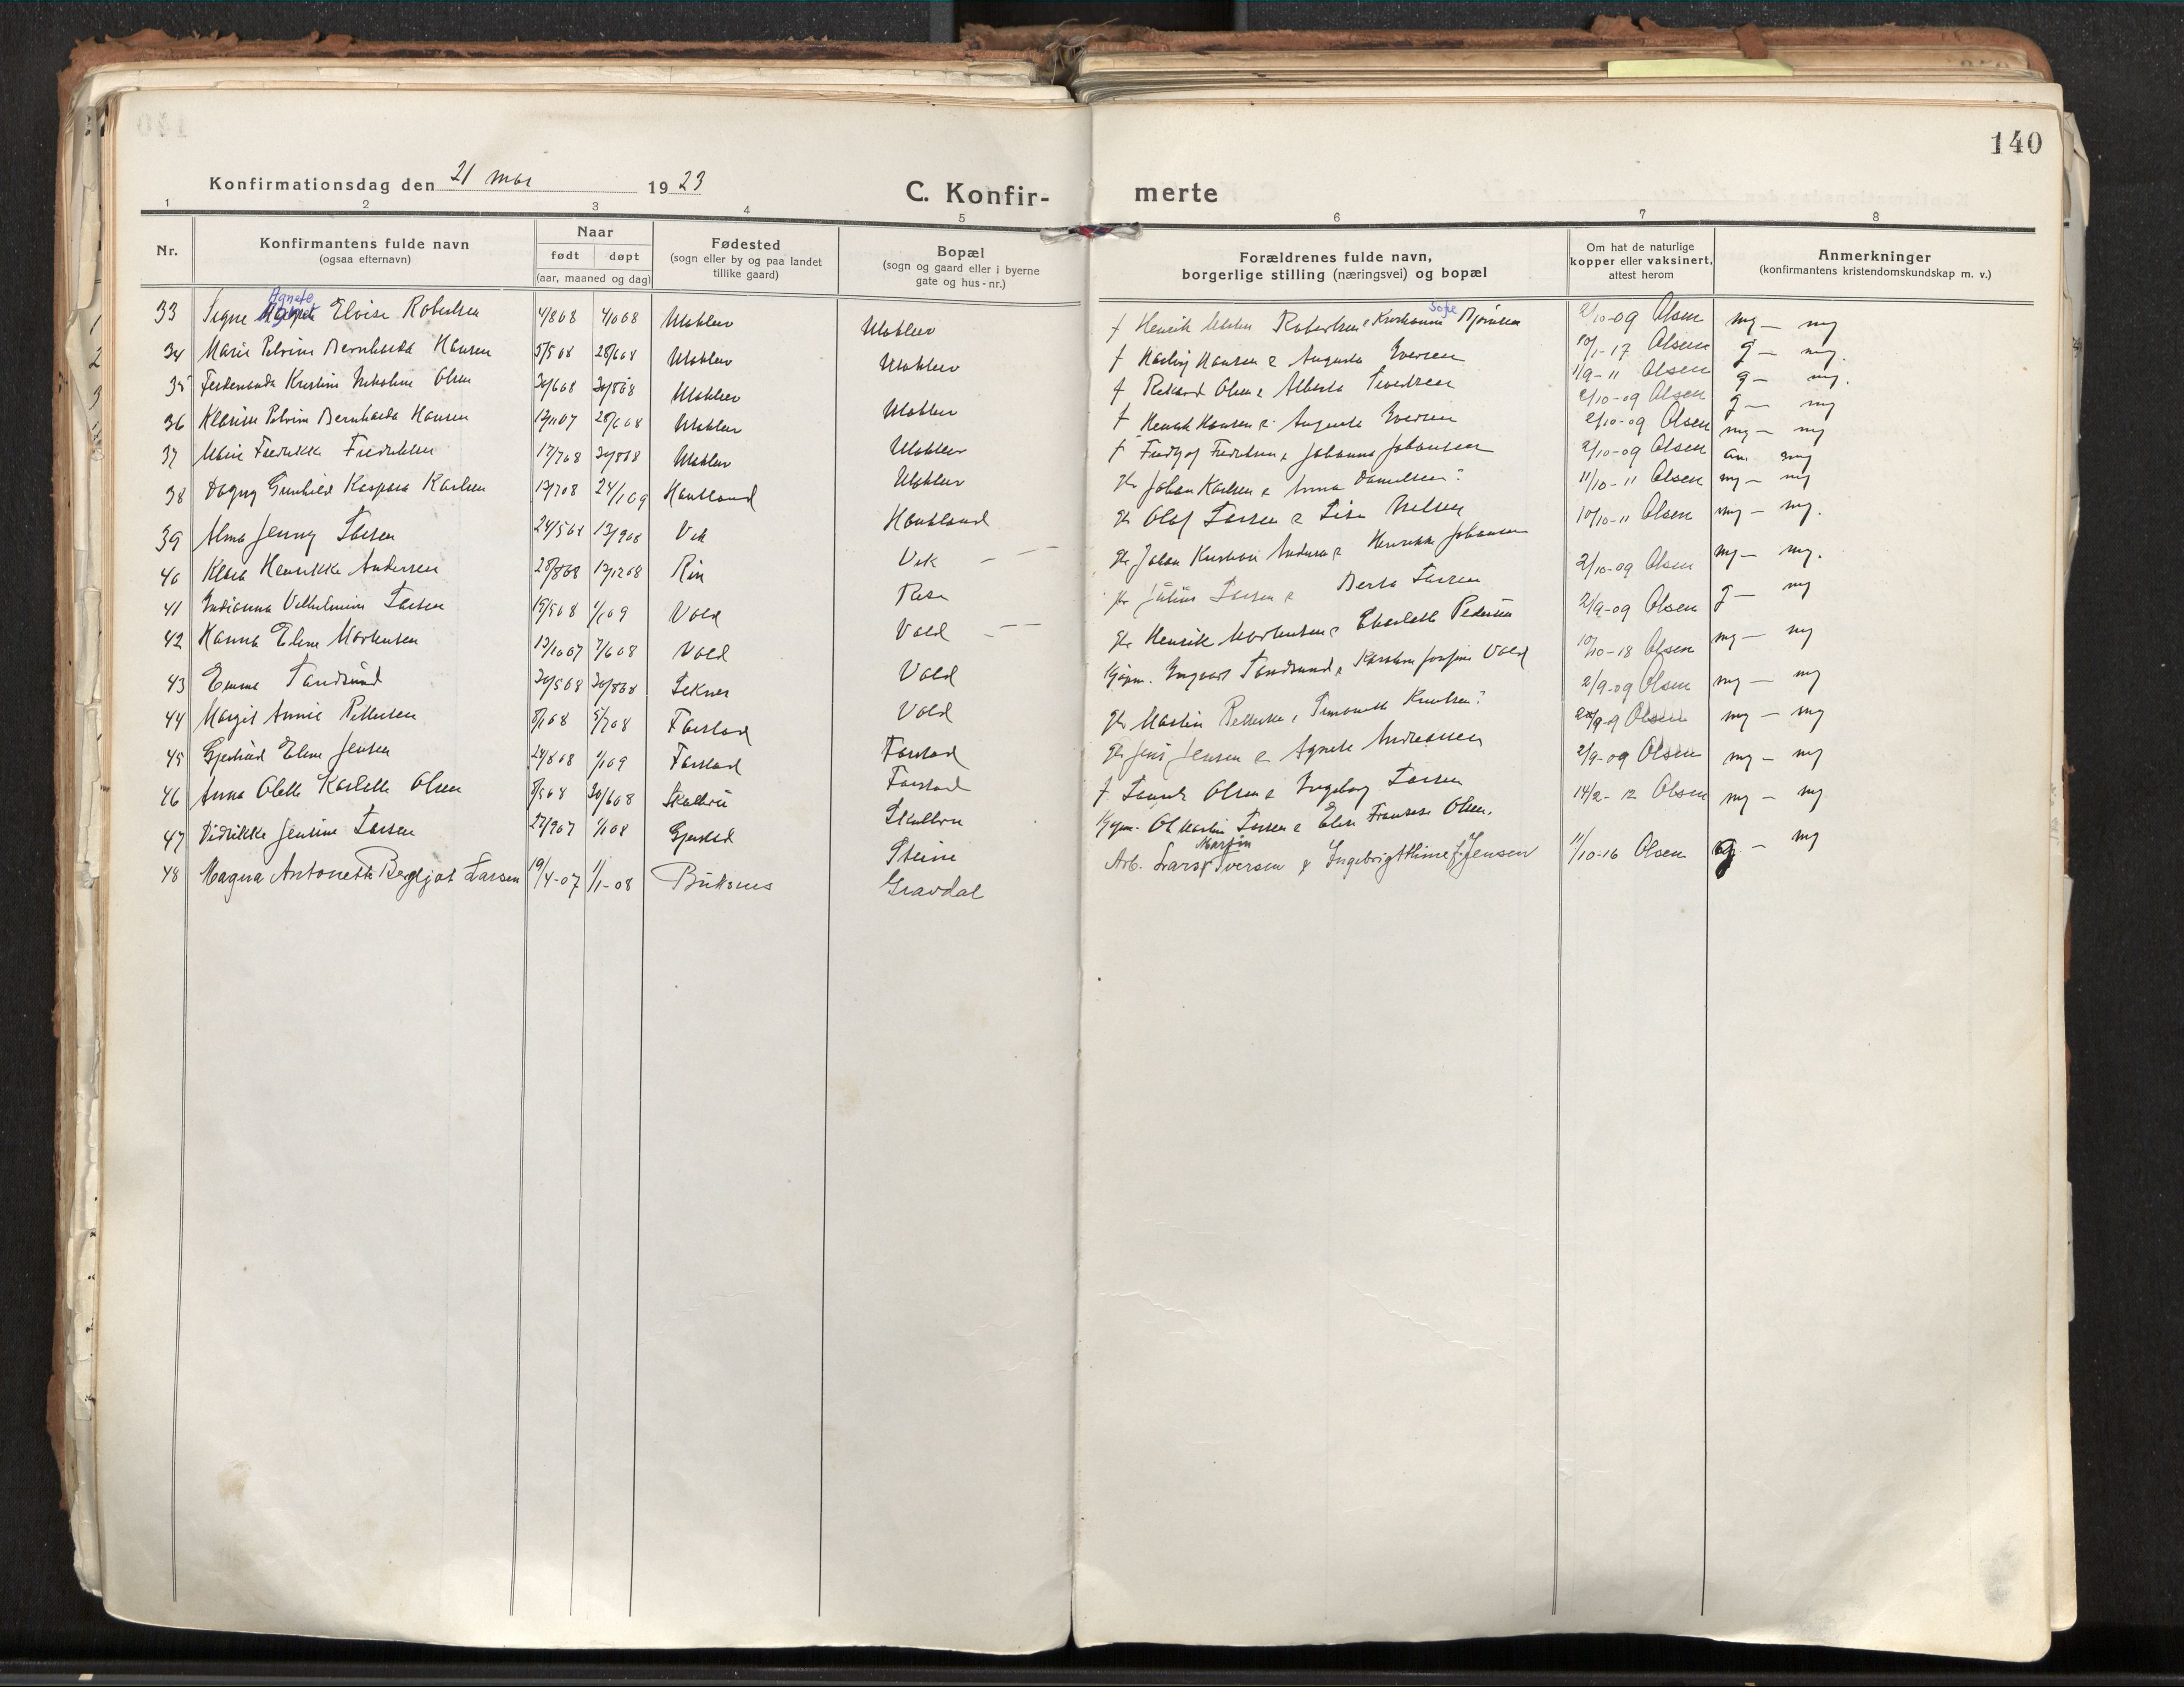 140
Konfirmationsdag den 21 mai 1923
C. Konfir-
merte
1 2 3 4 5 6 7 8
Nr.
Konfirmantens fulde navn
(ogsaa efternavn)
Naar
født døpt
(aar, maaned og dag)
Fødested
(sogn eller by og paa landet
tillike gaard)
Bopæl
(sogn og gaard eller i byerne
gate og hus-nr.)
Forældrenes fulde navn,
borgerlige stilling (næringsvei) og bopæl
Om hat de naturlige
kopper eller vaksinert,
attest herom
Anmerkninger
(konfirmantens kristendomskundskap m. v.)
Agnete Sofie
33 Signe Elvise Robertsen 4/8 08 4/10 08 f Henrik Robertsen & Kristianna Bjørnsen 2/10-09 Olsen mg — mg
34 Marie Petrine Bernharda Hansen 5/5 08 28/6 08 f Hartvig Hansen & Augusta Iversen 10/1-17 Olsen g — mg.
35 Ferdenanda Kristine Nikoline Olsen 30/6 08 30/8 08 f Rikard Olsen & Alberte Sivertsen 1/9-11 Olsen g — mg.
36 Klarine Petrine Bernharda Hansen 12/11 07 28/6 08 f Henrik Hansen & Augusta Iversen 2/10-09 Olsen g — mg
37 Marie Fredrikke Fredriksen 17/7 08 30/8 08 f Fridtjof Fredriksen & Johanna Johansen 2/10-09 Olsen mg — mg
38 Dagny Gunhild Kaspara Karlsen 13/7 08 24/1 09 Haukland Haukland gbr Johan Karlsen & Anna Danielsen 2/10-09 Olsen mg
39 Alma Jenny Larsen 24/5 08 13/9 08 Vik Vik gbr Olaf Larsen & Lise Nilsen 11/10-11 Olsen mg — mg
40 Klara Henrikke Andersen 28/8 08 13/12 08 gbr Johan Kristian Andersen & Henrikke Johansen 10/10-11 Olsen mg — mg.
41 Indianna Vilhelmine Larsen 15/9 08 1/1 09 Vold Vold gbr Julius Larsen & Berta Larsen 2/10-09 Olsen mg — mg.
42 Hanna Eline Mortensen 13/10 07 7/6 08 Vold Vold gbr Henrik Mortensen & Charlotte Pedersen 2/9-09 Olsen g — mg
43 Emma Sandsund 30/5 08 30/8 08 Leknes Vold Kjøpm. Ingvart Sandsund & Karoline Josefine Vold 10/10-18 Olsen mg — mg
44 Margit Annie Pettersen 8/1 08 5/7 08 Farstad Farstad gbr Martin Pettersen & Simonette Knutsen 2/9-09 Olsen mg — mg
45 Gjertrud Eline Jensen 24/8 08 1/1 09 Farstad Farstad gbr Jens Jensen & Agnete Andreassen Olsen mg — mg
46 Anna Olette Karlotte Olsen 8/5 08 30/6 08 Skulbru Skulbru f Laurits Olsen & Ingeborg Larsen 2/9-09 Olsen mg — mg
47 Didrikke Jensine Larsen 27/9 07 1/1 08 Gjerstad Steine Kjøpm. Ol Martin Larsen & Elise Fransese Olsen. 14/2-12 Olsen mg — mg
48 Magna Antonette Bergljot Larsen 19/4-07 1/1-08 Buksnes Gravdal Arb. Lars Martin Iversen & Ingebrigthine f. Jensen 11/10-16 Olsen g — mg